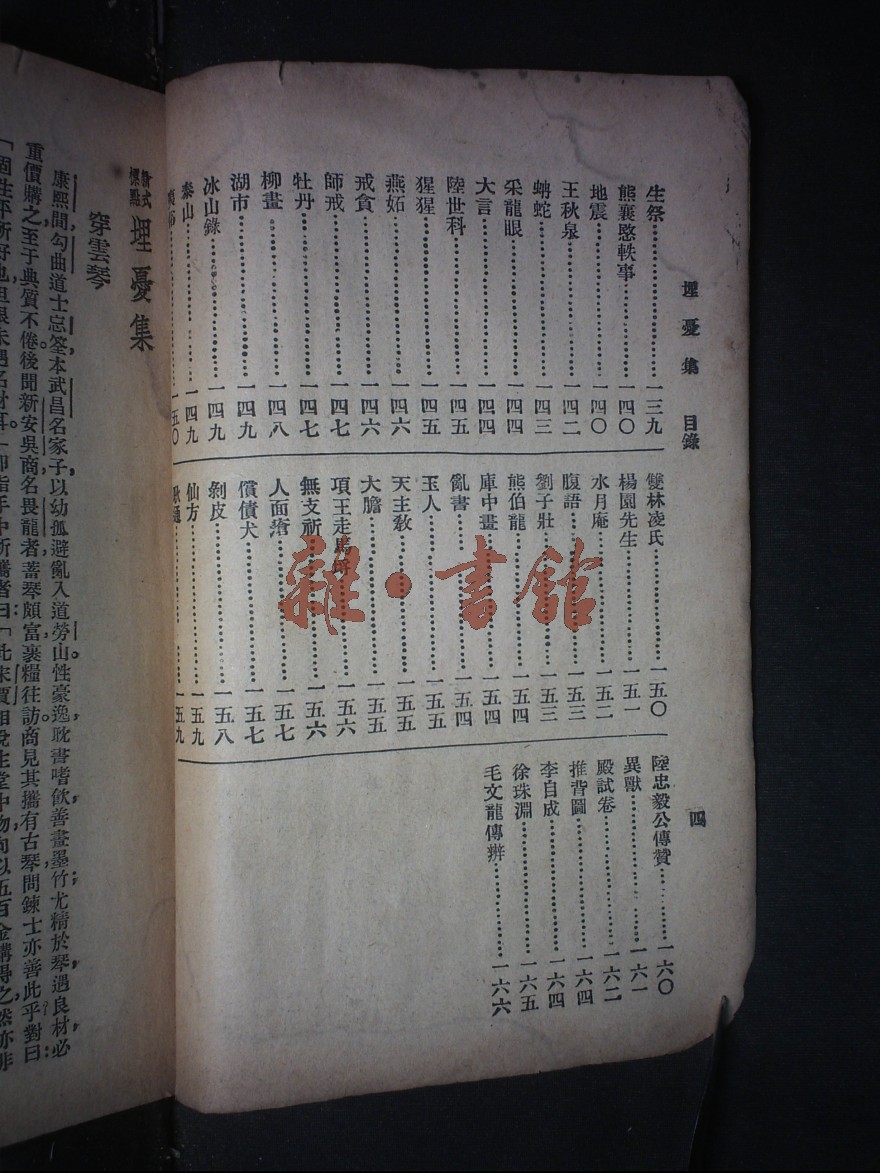 埋憂集 目錄
四
生祭一三九
熊襄愍軼事一四〇
地震一四〇
王秋泉一四二
蚺蛇一四三
采龍眼一四四
大言一四四
陸世科一四五
猩猩一四五
燕妬一四六
戒貪一四六
師戒一四七
牡丹一四七
柳畫一四八
湖市一四九
冰山錄一四九
泰山一四九
一五〇
雙林凌氏一五〇
楊園先生一五一
水月庵一五二
腹語一五三
劉子壯一五三
熊伯龍一五四
庫中畫一五四
亂書一五四
玉人一五五
天主教一五五
大膽一五五
項王走馬一五六
無支祈一五六
人面瘡一五七
償債犬一五七
剝皮一五八
仙方一五九
一五九
陸忠毅公傳贊一六〇
異獸一六一
殿試卷一六二
推背圖一六四
李自成一六四
徐珠淵一六五
毛文龍傳辨一六六
雜·書館
新式標點 埋憂集
穿雲琴
康熙間，勾曲道士忘筌，本武昌名家子，以幼孤避亂，入道勞山。性豪逸，耽書嗜飲，善畫墨竹；尤精於琴，遇良材，必
重價購之，至于典質不倦。後聞新安吳商名畏龍者，蓄琴頗富，裹糧往訪。商見其攜有古琴，問鍊士亦善此乎？對曰：
「固生平所好也，但恨未遇名材耳。」即指手中所攜者曰：「此